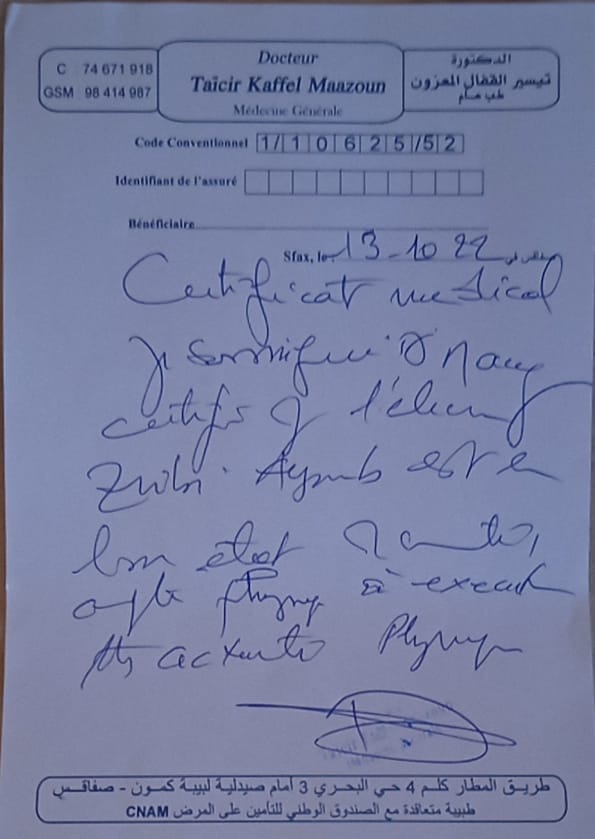 C 74 671 918
GSM 98 414 987
Docteur
Taïcir Kaffel Maazoun
Médecine Générale
الدكتورة
تيسير القفال المعزون
طب عام
Code Conventionnel 1/10625/52
Identifiant de l'assuré
Bénéficiaire
Sfax, le 13-10 22 صفاقس في
Certificat medical
Je soussigné Dr
certifie q l'élève
Zribi Ayoub est en
bon état
apte physiq à
activités Physiq
طريق المطار كلم 4 حي البحري 3 أمام صيدلية لبيبة كمون - صفاقس
طبيبة متعاقدة مع الصندوق الوطني للتأمين على المرض CNAM